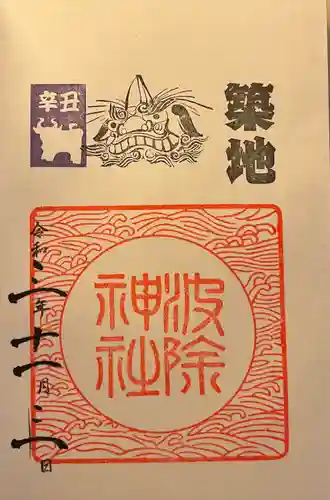 築地
辛丑
波除
神社
令和三年十一月三日